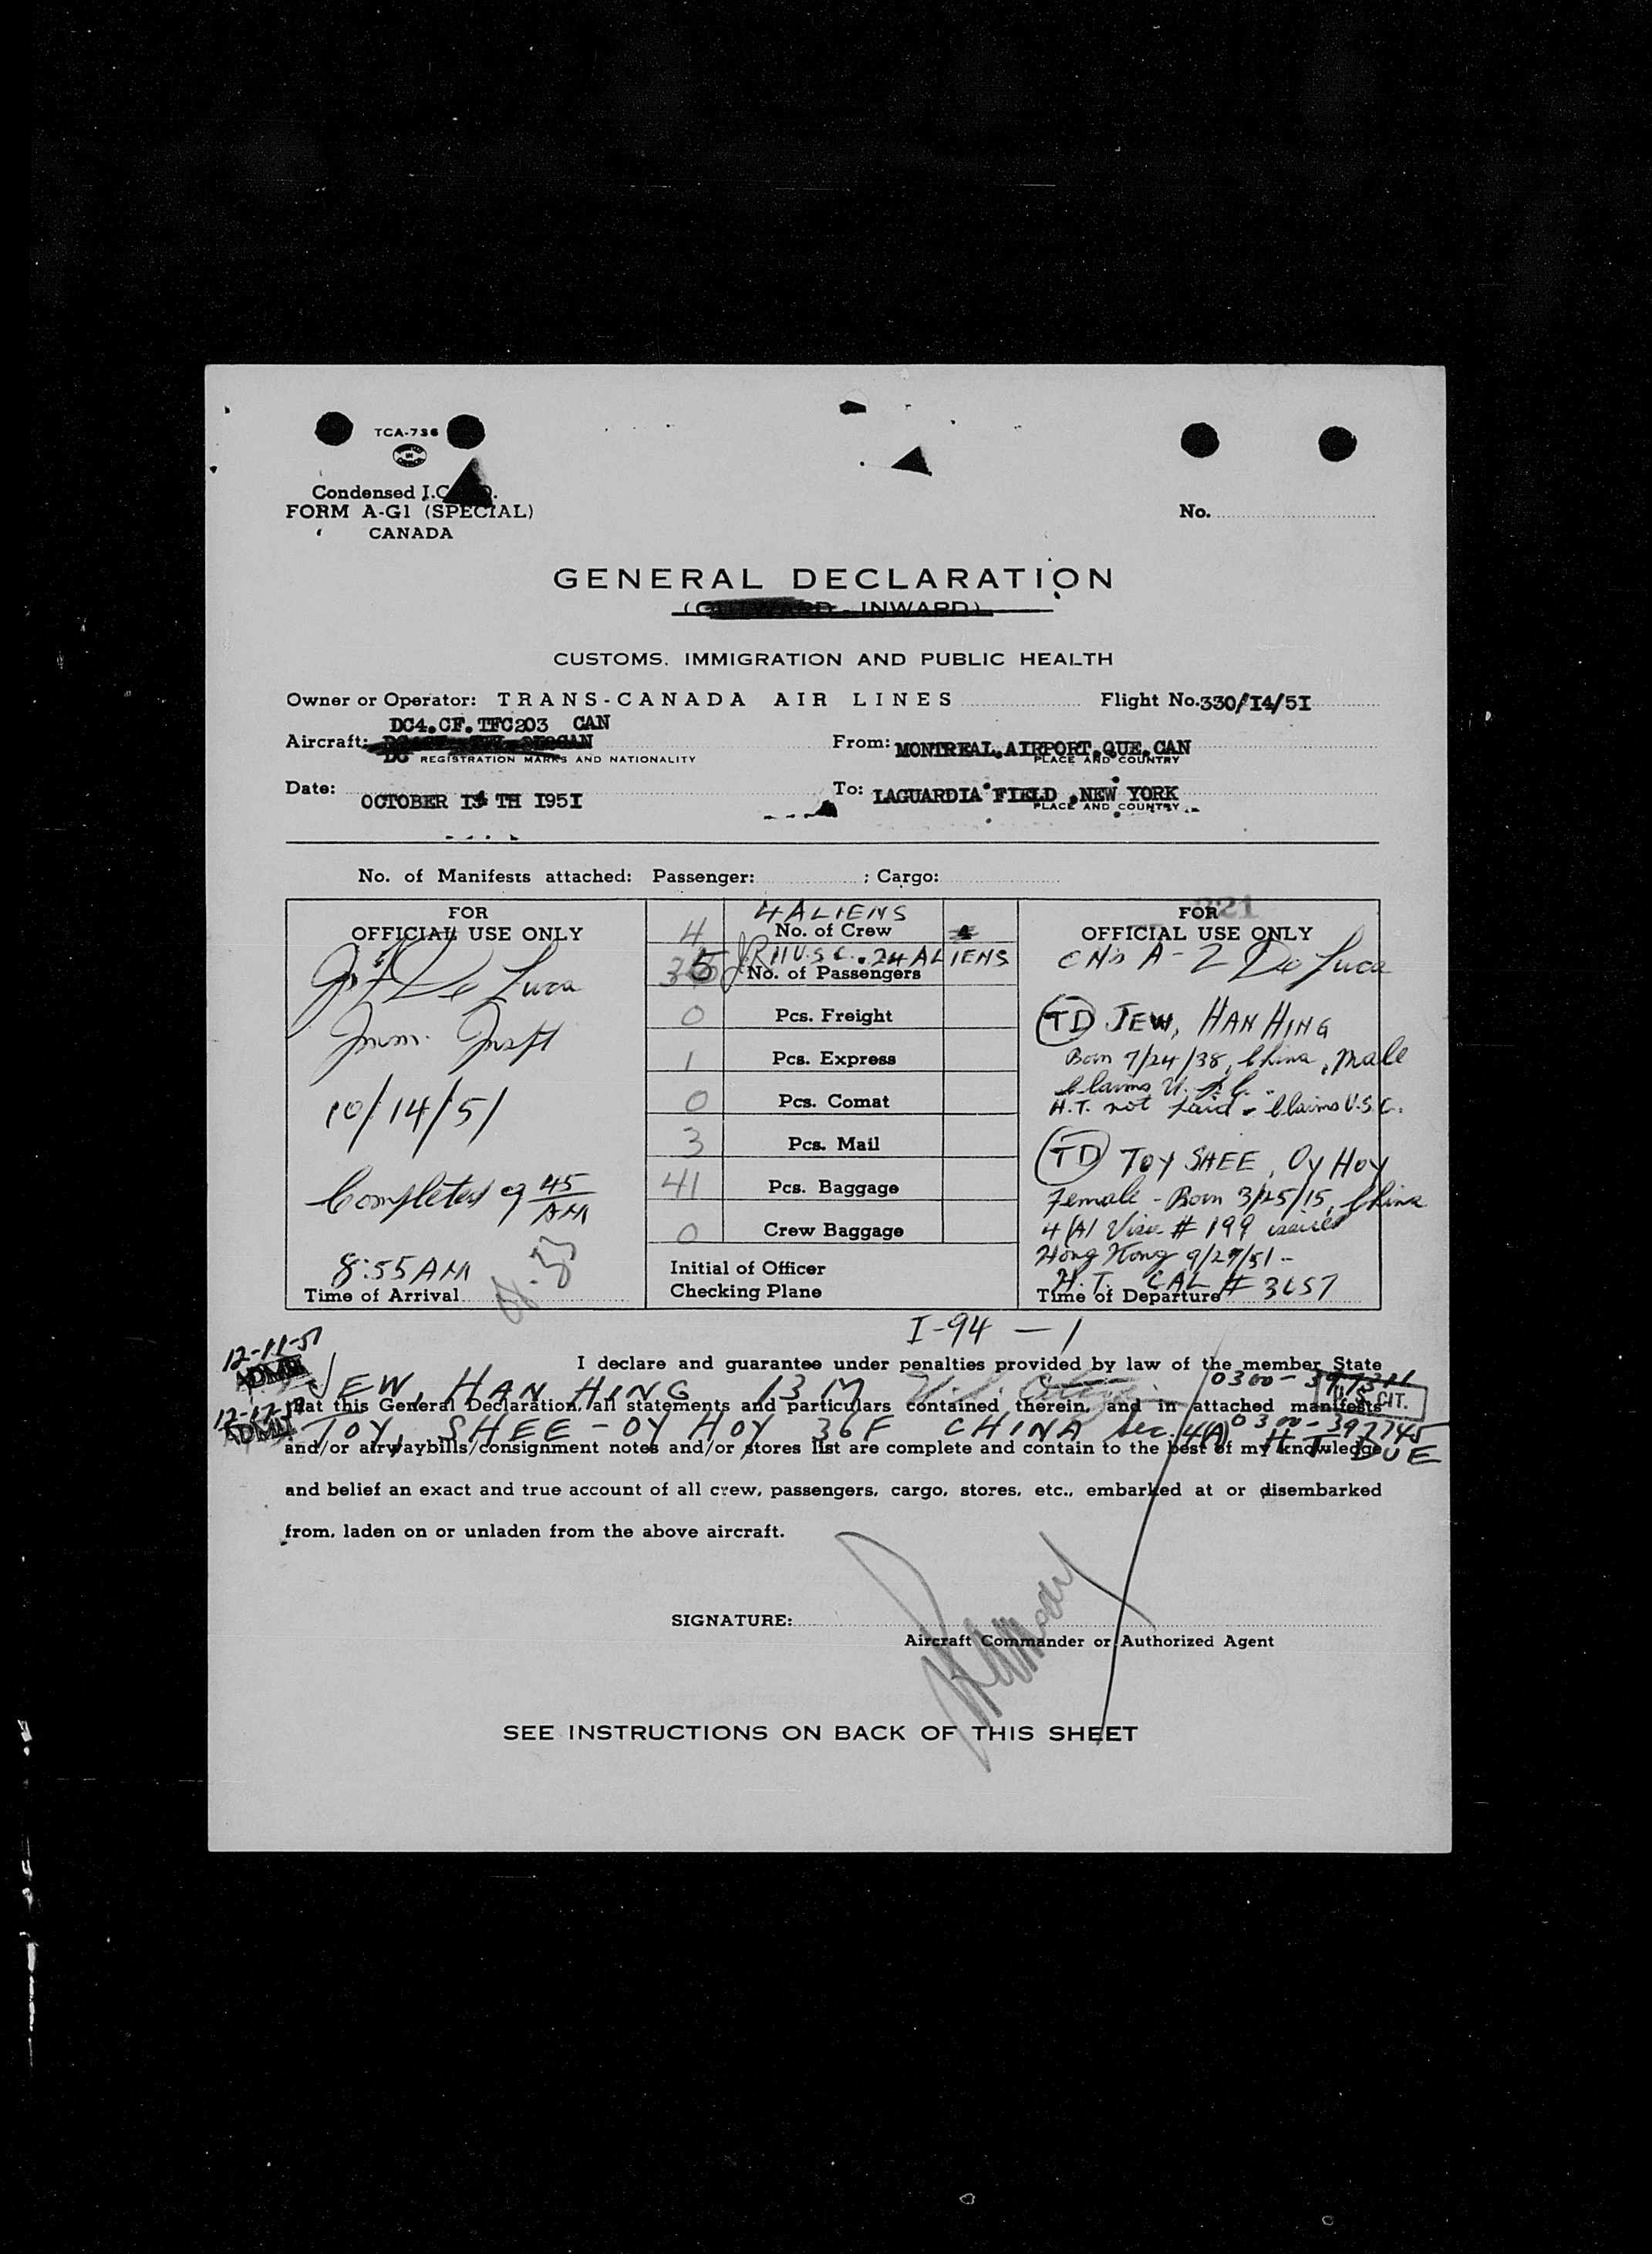 TCA-736
Condensed I.C
FORM A-G1 (SPECIAL)
CANADA
No.
GENERAL DECLARATION
INWARD)
CUSTOMS, IMMIGRATION AND PUBLIC HEALTH
Owner or Operator: TRANS-CANADA AIR LINES Flight No. 330/I4/5I
DC4.CF.TFC203 CAN
Aircraft: From: MONTREAL.AIRPORT.QUE.CAN
REGISTRATION MARKS AND NATIONALITY PLACE AND COUNTRY
Date: OCTOBER I4 TH I95I To: LAGUARDIA FIELD ,NEW YORK
PLACE AND COUNTRY
No. of Manifests attached: Passenger: ; Cargo:
221
FOR OFFICIAL USE ONLY
De Luca
10/14/51
Completed 9 45 AM
8:55 AM
Time of Arrival
4 ALIENS
4 No. of Crew 4
11 U.S.C. 24 ALIENS
35 No. of Passengers
0 Pcs. Freight
1 Pcs. Express
0 Pcs. Comat
3 Pcs. Mail
41 Pcs. Baggage
0 Crew Baggage
Initial of Officer
Checking Plane
FOR OFFICIAL USE ONLY
A-2 De Luca
TD JEW, HAN HING
Born 7/24/38, China, Male
Claims U.S.C.
H.T. not paid - Claims U.S.C.
TD TOY SHEE, Oy Hoy
Female - Born 3/25/15, China
4(A) Visa # 199 issued
Hong Kong 9/27/51 -
H.T. CAL # 3657
Time of Departure
I-94 - 1
12-11-51
ADMD
I declare and guarantee under penalties provided by law of the member State
JEW, HAN HING 13 M U.S. Citizen 0300-397311
U.S. CIT.
that this General Declaration, all statements and particulars contained therein, and in attached manifests
ADMD
TOY, SHEE - OY HOY 36 F CHINA Sec. 4(A) 0300-397745
H.T. DUE
and/or airwaybills/consignment notes and/or stores list are complete and contain to the best of my knowledge
and belief an exact and true account of all crew, passengers, cargo, stores, etc., embarked at or disembarked
from, laden on or unladen from the above aircraft.
SIGNATURE:
Aircraft Commander or Authorized Agent
SEE INSTRUCTIONS ON BACK OF THIS SHEET